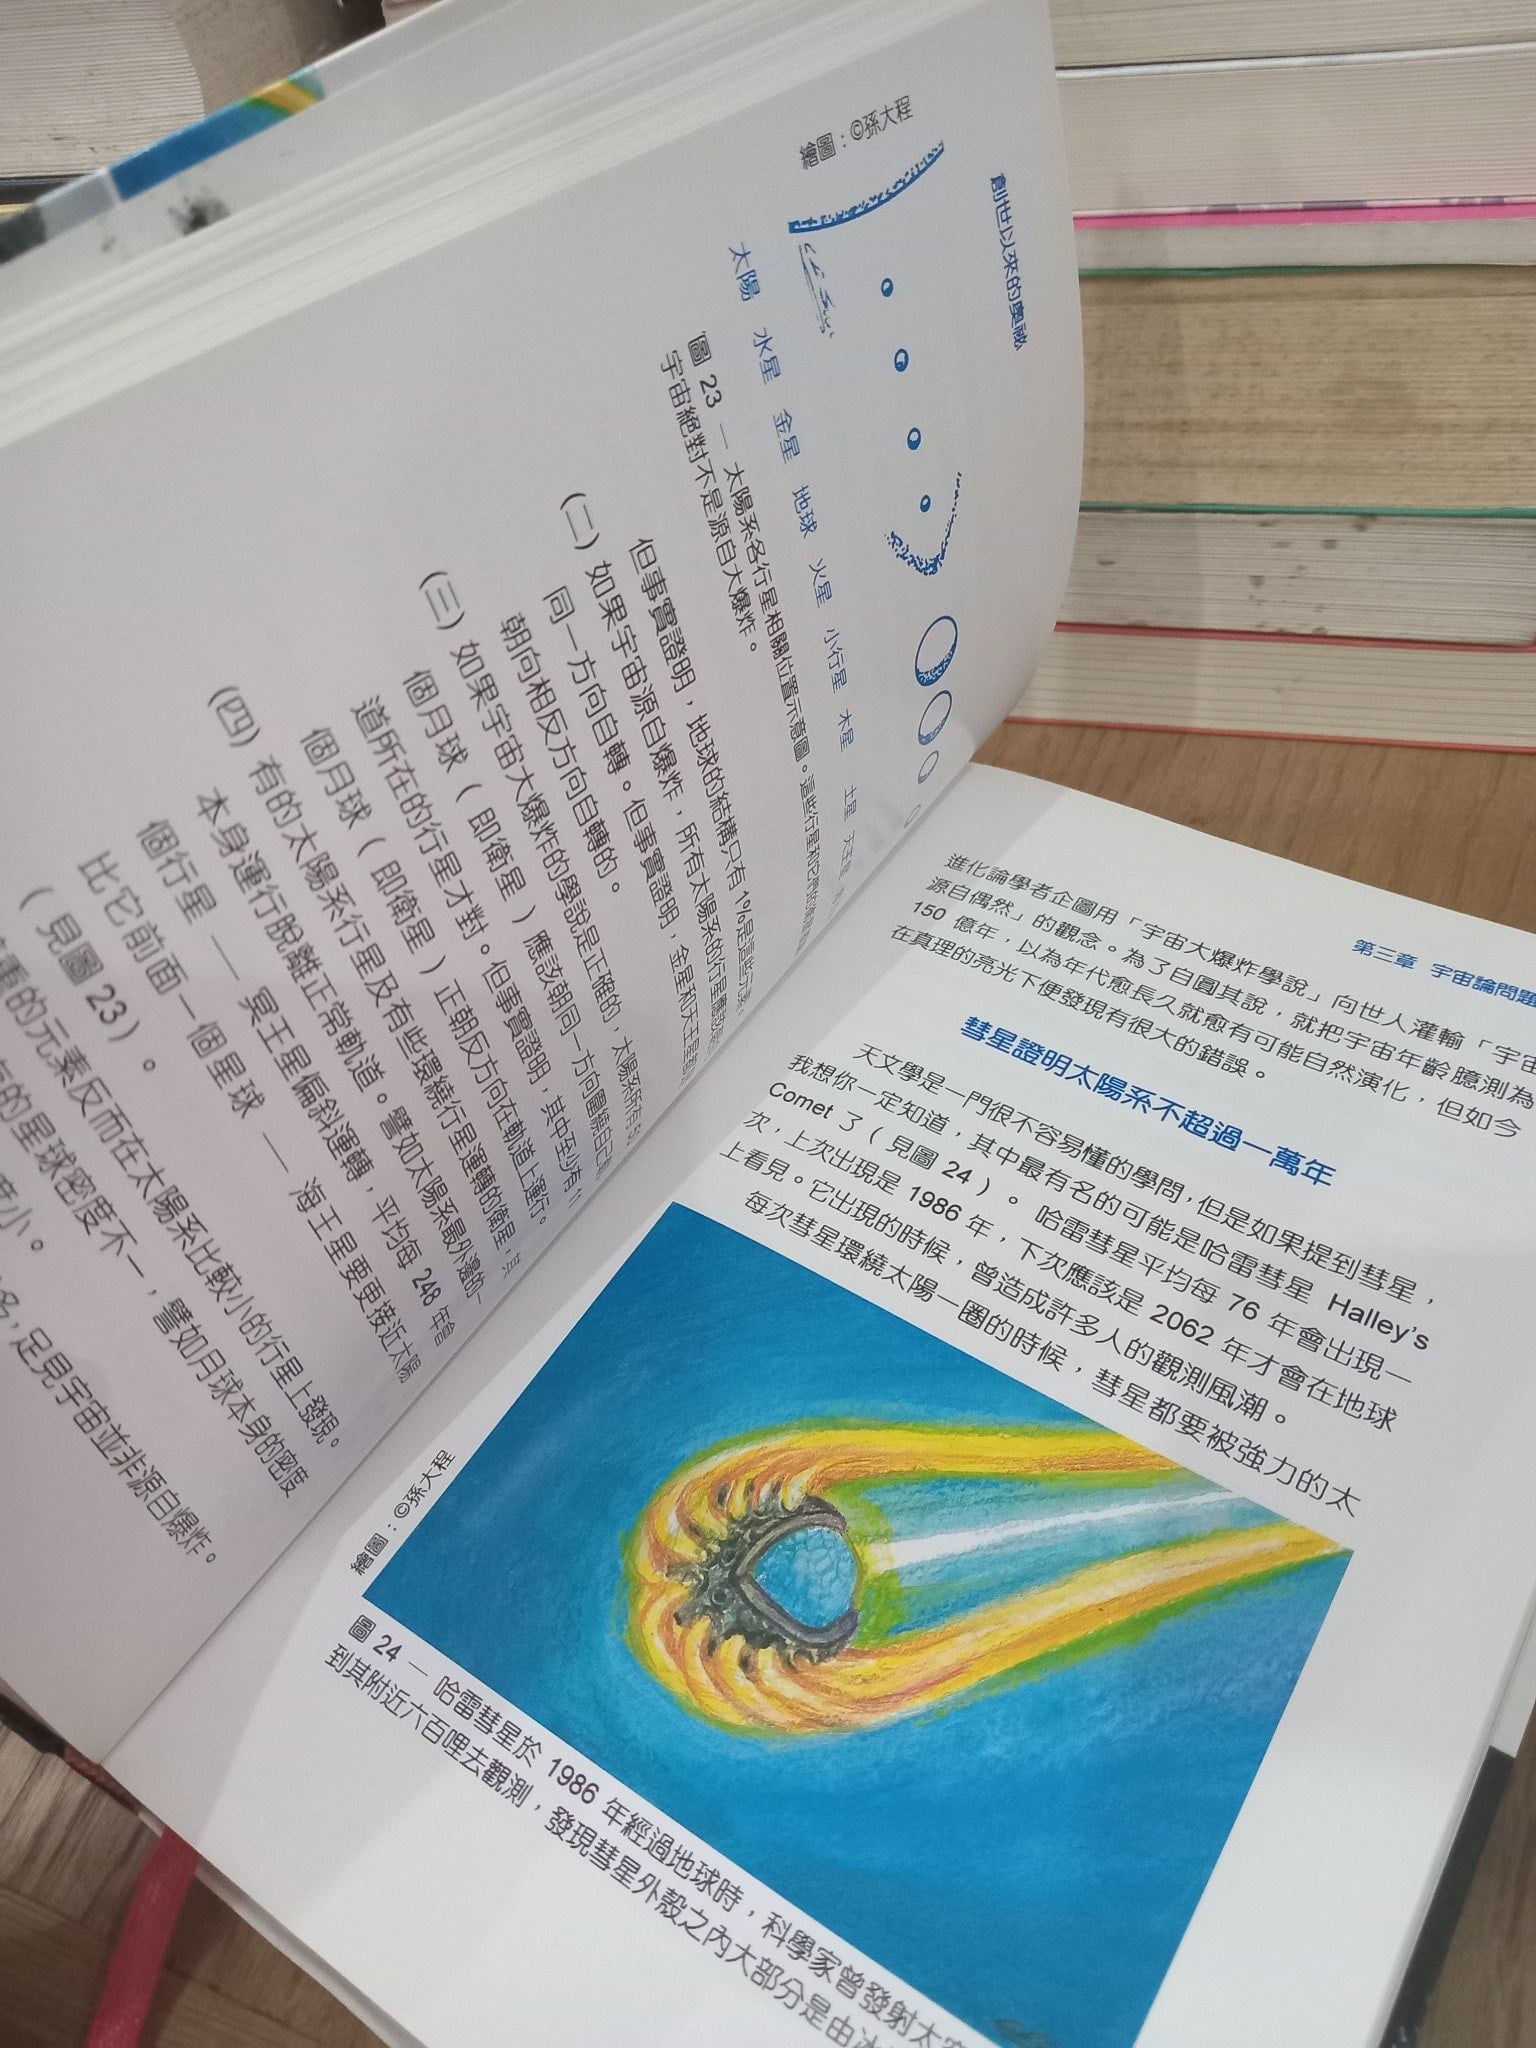 創世以來的奧祕
繪圖：©孫大程
太陽 水星 金星 地球 火星 小行星 木星 土星 天王星
圖 23 — 太陽系各行星相關位置示意圖。這些行星和它們的衛星證明
宇宙絕對不是源自大爆炸。
但事實證明，地球的結構只有 1%是這些元素。
(二) 如果宇宙源自爆炸，所有太陽系的行星應該
同一方向自轉。但事實證明，金星和天王星
朝向相反方向自轉的。
(三) 如果宇宙大爆炸的學說是正確的，太陽系所有的
個月球（即衛星）應該朝同一方向圍繞自己軌
道所在的行星才對。但事實證明，其中至少有
個月球（即衛星）正朝反方向在軌道上運行。
(四) 有的太陽系行星及有些環繞行星運轉的衛星，其
本身運行脫離正常軌道。譬如太陽系最外邊的一
個行星 — 冥王星偏斜運轉，平均每 248 年會
比它前面一個星球 — 海王星要更接近太陽
（見圖 23）。
重的元素反而在太陽系比較小的行星上發現。
的星球密度不一，譬如月球本身的密度
度小。
名，足見宇宙並非源自爆炸。
第三章 宇宙論問題
進化論學者企圖用「宇宙大爆炸學說」向世人灌輸「宇宙
源自偶然」的觀念。為了自圓其說，就把宇宙年齡臆測為
150 億年，以為年代愈長久就愈有可能自然演化，但如今
在真理的亮光下便發現有很大的錯誤。
彗星證明太陽系不超過一萬年
天文學是一門很不容易懂的學問，但是如果提到彗星，
我想你一定知道，其中最有名的可能是哈雷彗星 Halley's
Comet 了（見圖 24）。 哈雷彗星平均每 76 年會出現一
次，上次出現是 1986 年，下次應該是 2062 年才會在地球
上看見。它出現的時候，曾造成許多人的觀測風潮。
每次彗星環繞太陽一圈的時候，彗星都要被強力的太
繪圖：©孫大程
圖 24 — 哈雷彗星於 1986 年經過地球時，科學家曾發射太空
到其附近六百哩去觀測，發現彗星外殼之內大部分是由冰